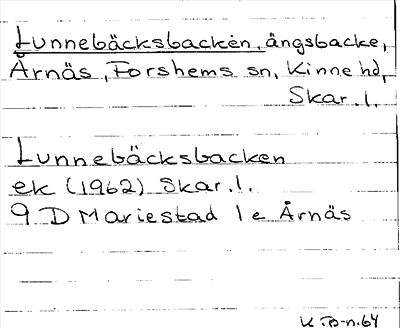 Lunnebäcksbacken, ängsbacke,
Årnäs, Forshems sn, Kinne hd,
Skar.l.
Lunnebäcksbacken
ek (1962) Skar.l.
9 D Mariestad 1e Årnäs
K.B-n.64